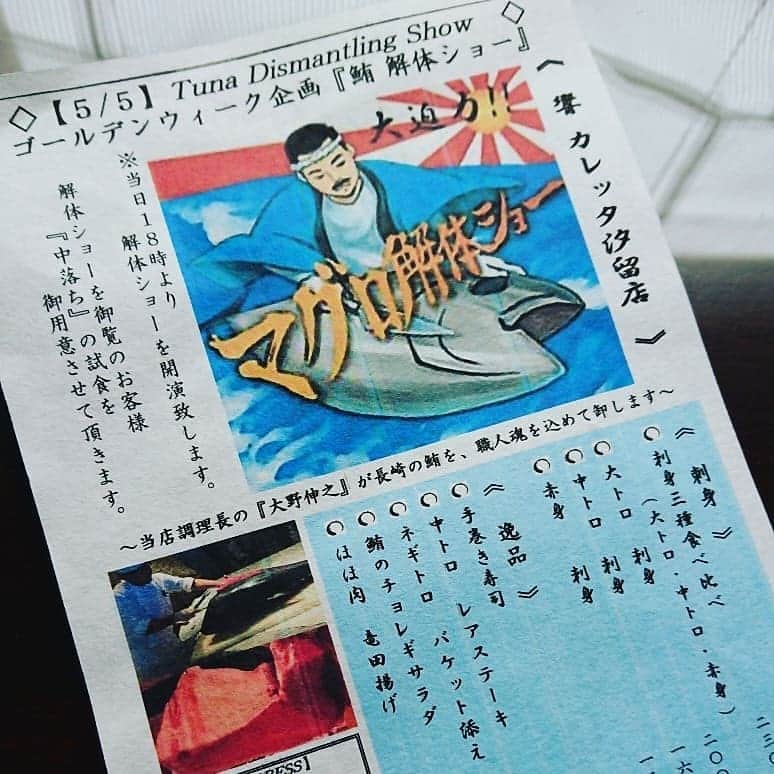 ◇【5/5】Tuna Dismantling Show ◇
ゴールデンウィーク企画『鮪 解体ショー』
《 響 カレッタ汐留店 》
大迫力!!
マグロ解体ショー
※当日18時より
解体ショーを開演致します。
解体ショーを御覧のお客様
『中落ち』の試食を
御用意させて頂きます。
～当店調理長の『大野伸之』が長崎の鮪を、職人魂を込めて卸します～
《 刺身 》
○ 刺身三種食べ比べ
(大トロ・中トロ・赤身)
○ 大トロ 刺身
○ 中トロ 刺身
○ 赤身 刺身
《 逸品 》
○ 手巻き寿司
○ 中トロ レアステーキ
○ ネギトロ バケット添え
○ 鮪のチョレギサラダ
○ ほほ肉 竜田揚げ